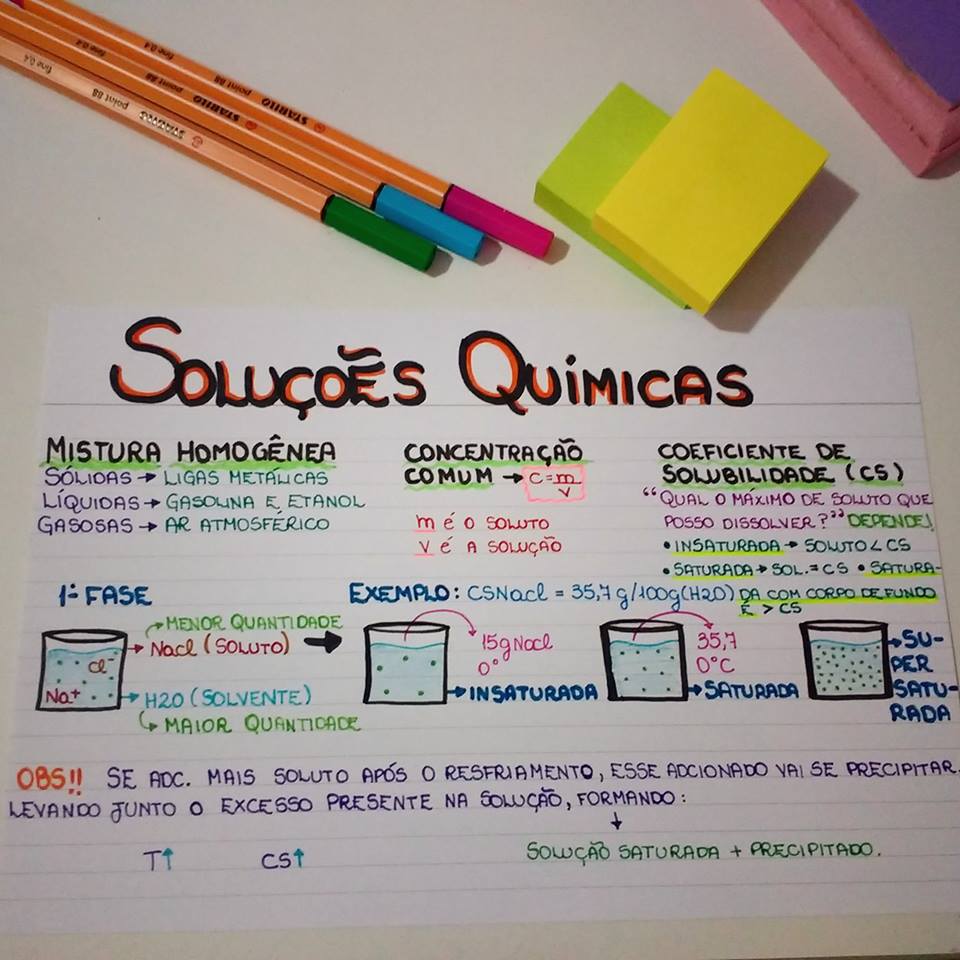 STABILO point 88 fine 0,4
STABILO point 88 fine 0,4
STABILO point 88 fine 0,4
SOLUÇÕES QUÍMICAS
MISTURA HOMOGÊNEA
SÓLIDAS → LIGAS METÁLICAS
LÍQUIDAS → GASOLINA E ETANOL
GASOSAS → AR ATMOSFÉRICO
CONCENTRAÇÃO
COMUM → C=m/V
m é O SOLUTO
V é A SOLUÇÃO
COEFICIENTE DE
SOLUBILIDADE (CS)
“QUAL O MÁXIMO DE SOLUTO QUE
POSSO DISSOLVER?” DEPENDE!
• INSATURADA → SOLUTO < CS
• SATURADA → SOL. = CS • SATURA-
DA COM CORPO DE FUNDO
É > CS
1ª FASE
MENOR QUANTIDADE
NaCl (SOLUTO)
Cl⁻
Na⁺
H2O (SOLVENTE)
MAIOR QUANTIDADE
EXEMPLO: CSNaCl = 35,7 g/100g(H2O)
15g NaCl
0°
INSATURADA
35,7
0°C
SATURADA
SU-
PER
SATU-
RADA
OBS!! SE ADC. MAIS SOLUTO APÓS O RESFRIAMENTO, ESSE ADCIONADO VAI SE PRECIPITAR.
LEVANDO JUNTO O EXCESSO PRESENTE NA SOLUÇÃO, FORMANDO:
↓
SOLUÇÃO SATURADA + PRECIPITADO.
T↑ CS↑